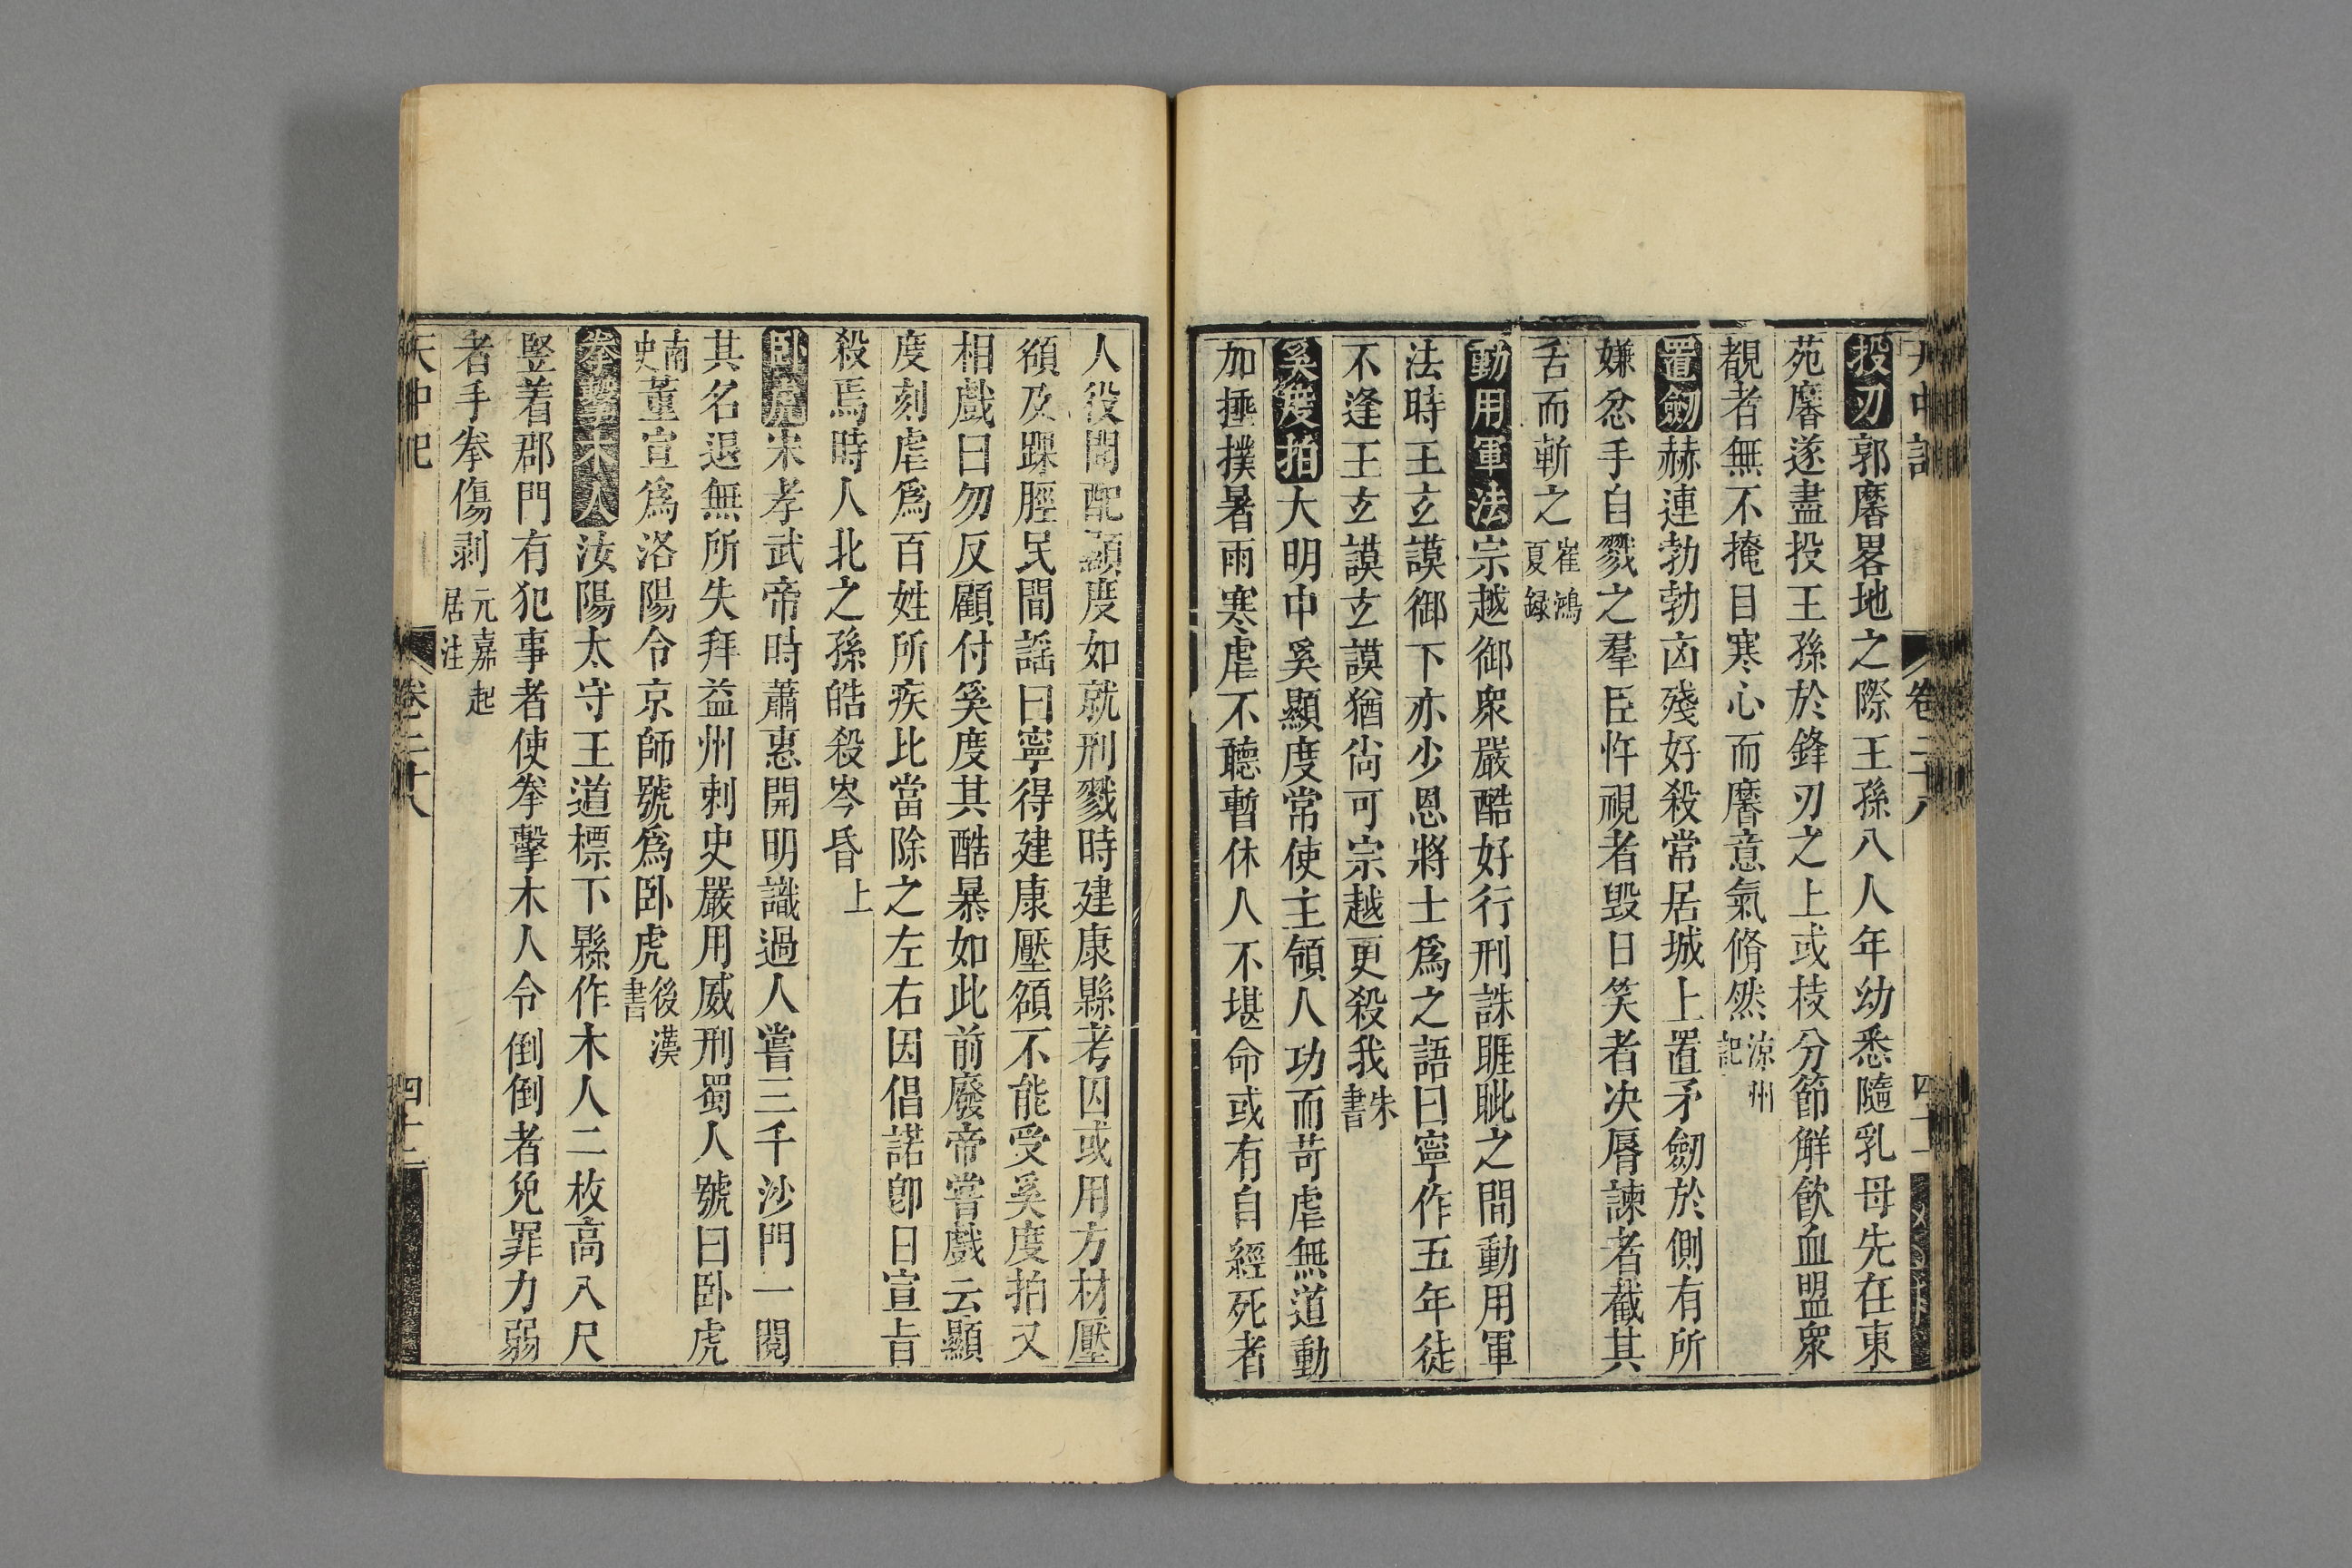 投刃郭黁畧地之際王孫八人年幼悉隨乳母先在東
苑黁遂盡投王孫於鋒刃之上或枝分節觧飲血盟衆
覩者無不掩目寒心而黁意氣脩然涼州記
置劒赫連勃勃凶殘好殺常居城上置矛劒於側有所
嫌忿手自戮之羣臣忤視者毀目笑者决脣諫者截其
舌而斬之崔鴻夏録
動用軍法宗越御衆嚴酷好行刑誅睚眦之間動用軍
法時王玄謨御下亦少恩將士爲之語曰寧作五年徒
不逢王玄謨玄謨猶尙可宗越更殺我朱書
奚度拍大明中奚顯度常使主領人功而苛虐無道動
加捶撲暑雨寒虐不聽暫休人不堪命或有自經死者
人役聞配顯度如就刑戮時建康縣考囚或用方材壓
額及踝脛民間謡曰寧得建康壓額不能受奚度拍又
相戲曰勿反顧付奚度其酷暴如此前廢帝嘗戲云顯
度刻虐爲百姓所疾比當除之左右因倡諾卽日宣旨
殺焉時人北之孫皓殺岑昏上
卧虎宋孝武帝時蕭惠開明識過人嘗三千沙門一閱
其名退無所失拜益州刺史嚴用威刑蜀人號曰卧虎
南史董宣爲洛陽令京師號爲卧虎後漢書
拳擊木人汝陽太守王道標下縣作木人二枚高八尺
竪着郡門有犯事者使拳擊木人令倒倒者免罪力弱
者手拳傷剥元嘉起居注
天中記 卷二十八 四十二